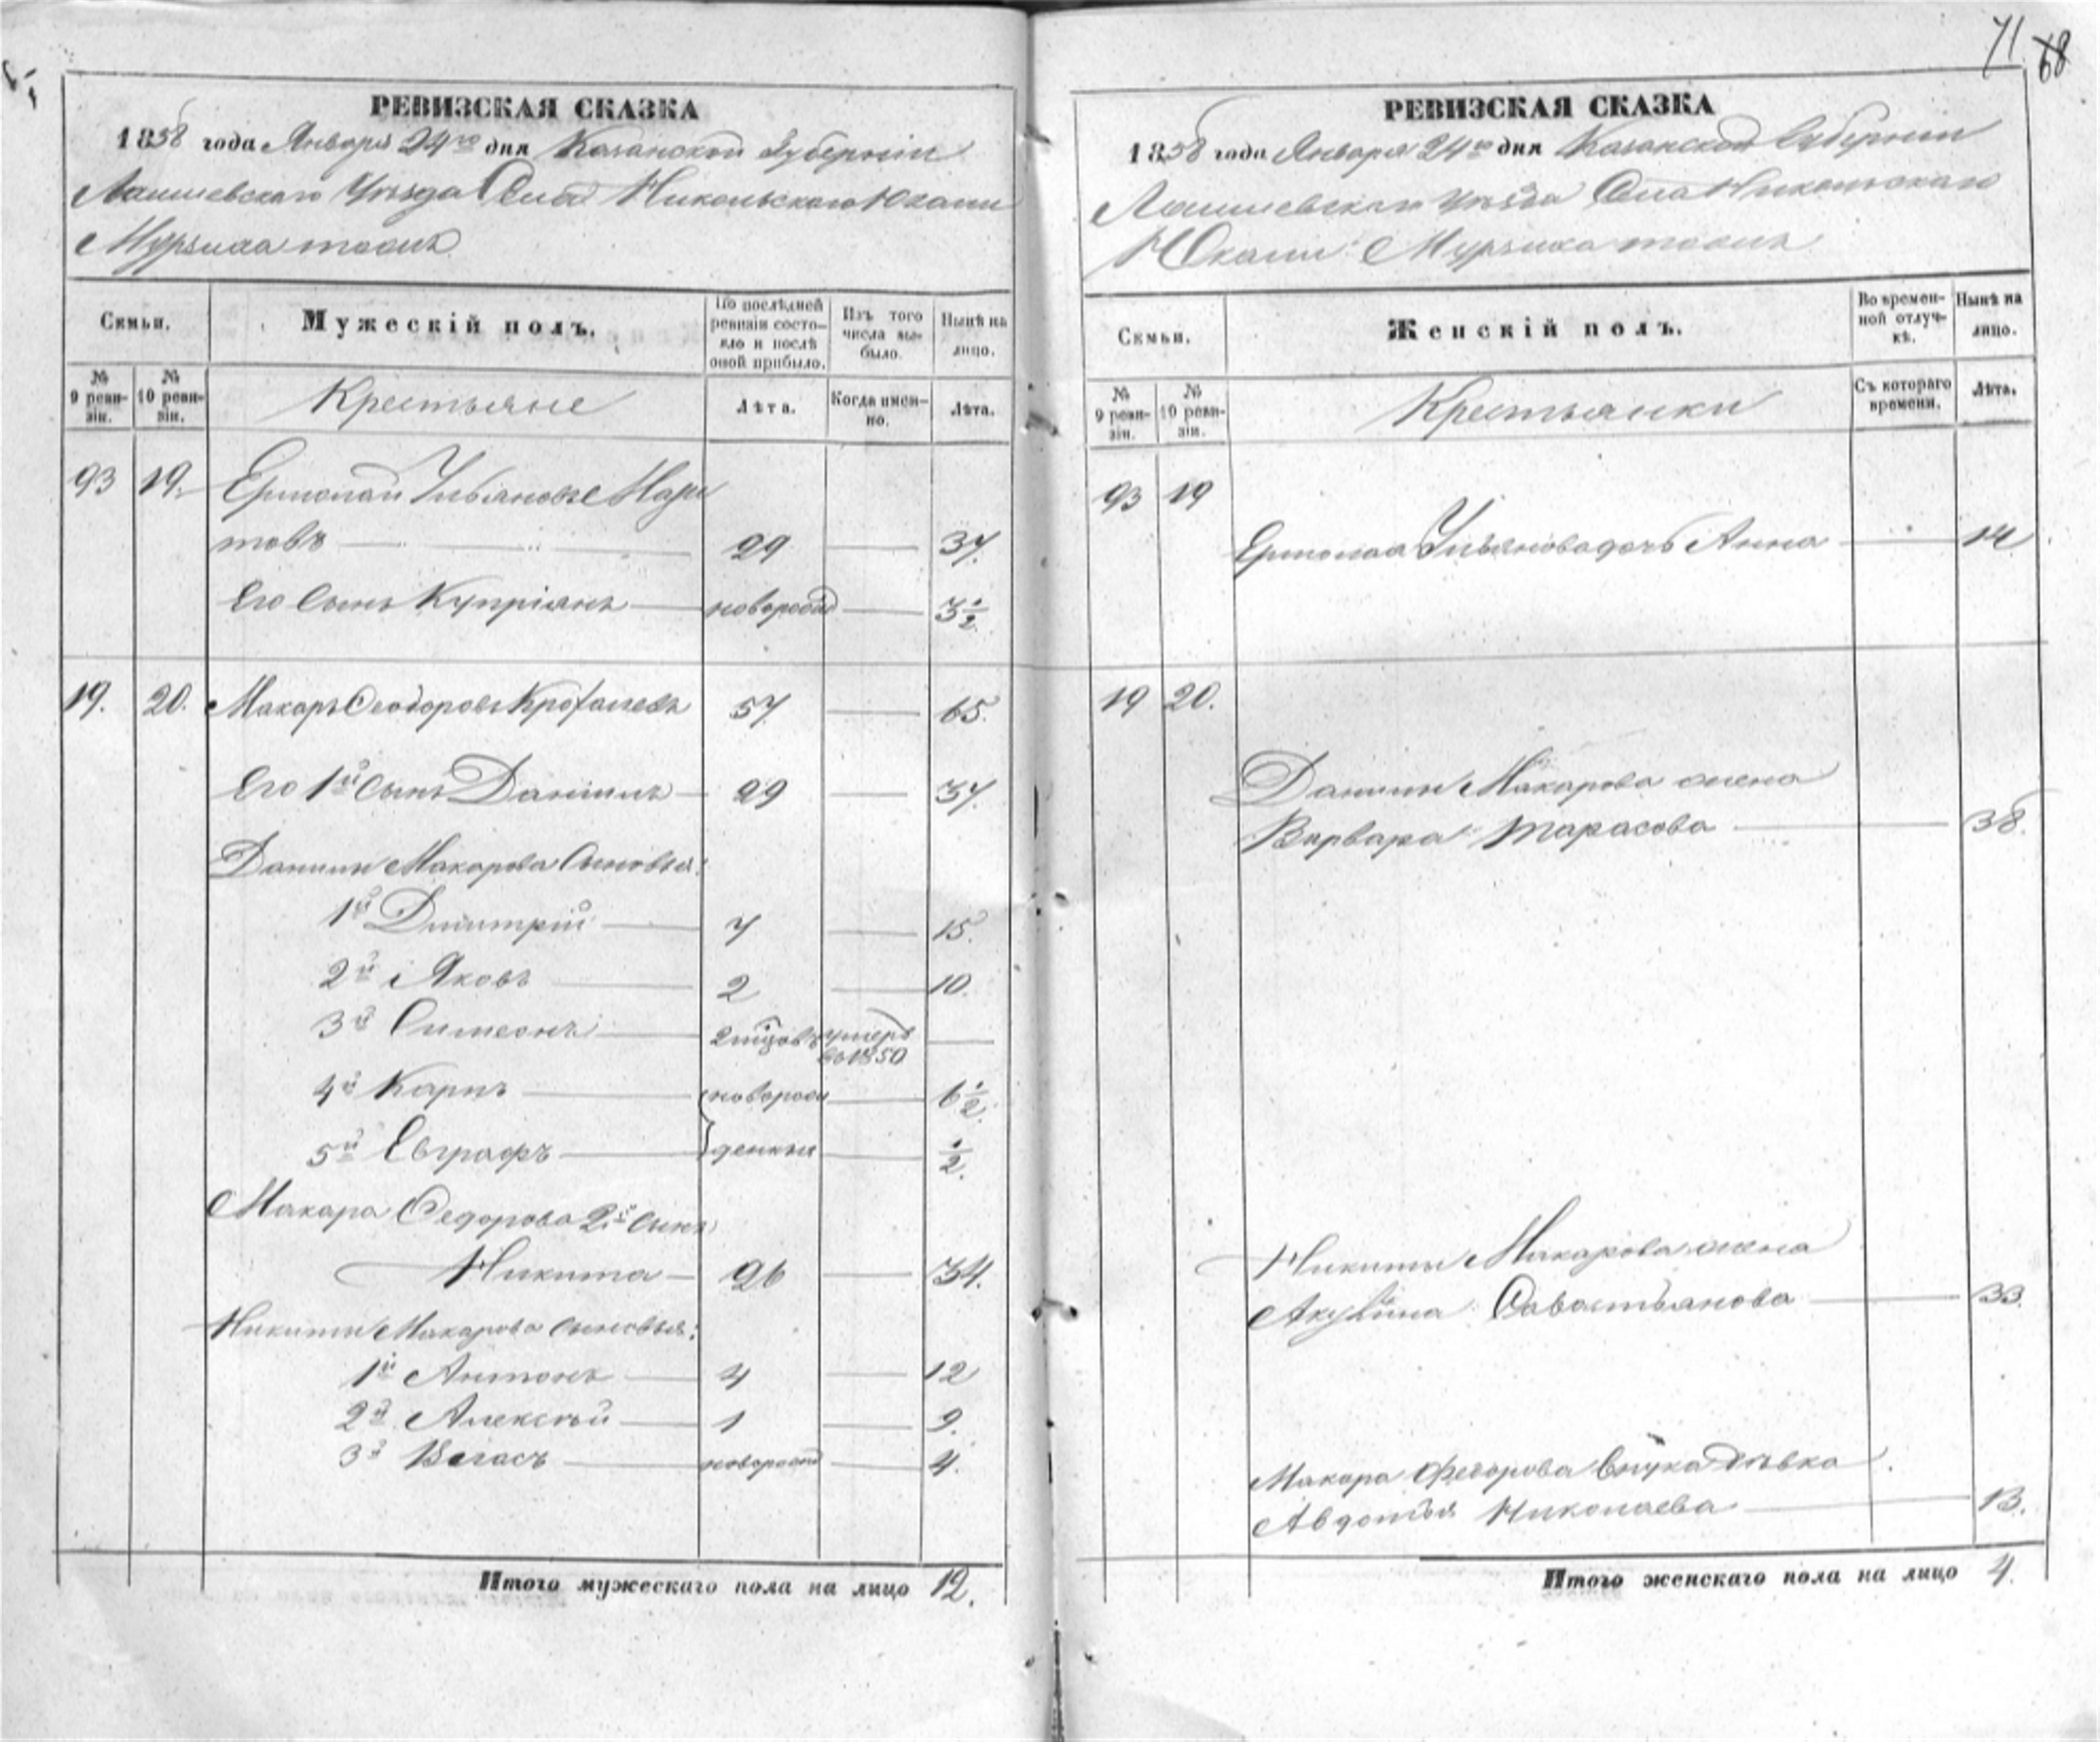 71 68
РЕВИЗСКАЯ СКАЗКА
1858 года Января 24го дня Казанской Губерніи
Лаишевскаго Уѣзда Села Никольскаго Юкачи
Мурзиха тожъ
Семьи.
Мужескій полъ.
По послѣдней ревизіи состояло и послѣ оной прибыло.
Изъ того числа выбыло.
Нынѣ на лицо.
№ 9 ревизіи.
№ 10 ревизіи.
Крестьяне
Лѣта.
Когда именно.
Лѣта.
93 19. Ермолай Ульяновъ
товъ 29 37.
Его Сынъ Купріянъ новорожд 3 1/2
19. 20. Макаръ Феодоровъ 57 65.
Его 1й Сынъ Даніилъ 29 37.
Данилы Макарова Сыновья:
1й Дмитрій 7 15.
2й Яковъ 2 10.
3й Симеонъ умеръ
въ 1850
4й Карпъ новорож 6 1/2.
5й Евграфъ денные 1/2.
Макара Федорова 2й Сынъ
Никита 26 34.
Никиты Макарова сыновья:
1й Антонъ 4 12
2й Алексѣй 1 9.
3й новорожд 4.
Итого мужескаго пола на лицо 12.
РЕВИЗСКАЯ СКАЗКА
1858 года Января 24го дня Казанской Губерніи
Лаишевскаго Уѣзда Села Никольскаго
Юкачи Мурзиха тожъ
Семьи.
Женскій полъ.
Во временной отлучкѣ.
Нынѣ на лицо.
№ 9 ревизіи.
№ 10 ревизіи.
Крестьянки
Съ котораго времени.
Лѣта.
93 19
Ермолая Ульянова дочь Анна 14
19 20.
Данилы Макарова жена
Варвара Тарасова 38.
Никиты Макарова жена
Акулина Савостьянова 33.
Макара Федорова Внука дѣвка
Авдотья Николаева 13.
Итого женскаго пола на лицо 4.